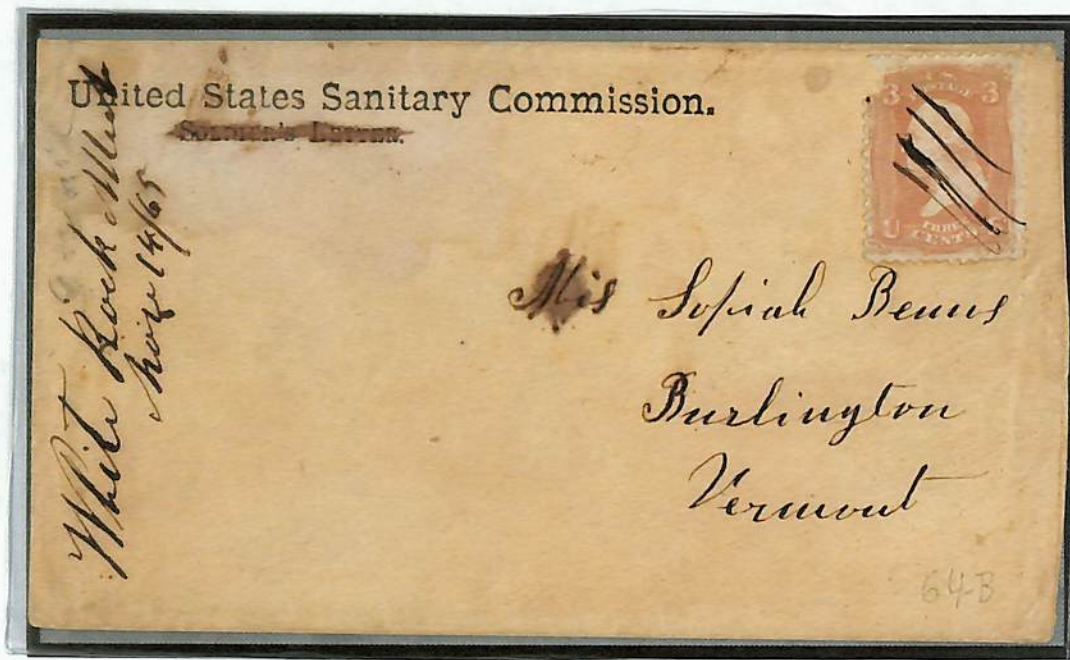 United States Sanitary Commission.
Soldier's Letter.
White Rock Mich
Nove 14/65
3 3
U S
THREE
CENTS
Mis Sopiah Benns
Burlington
Vermont
64-B